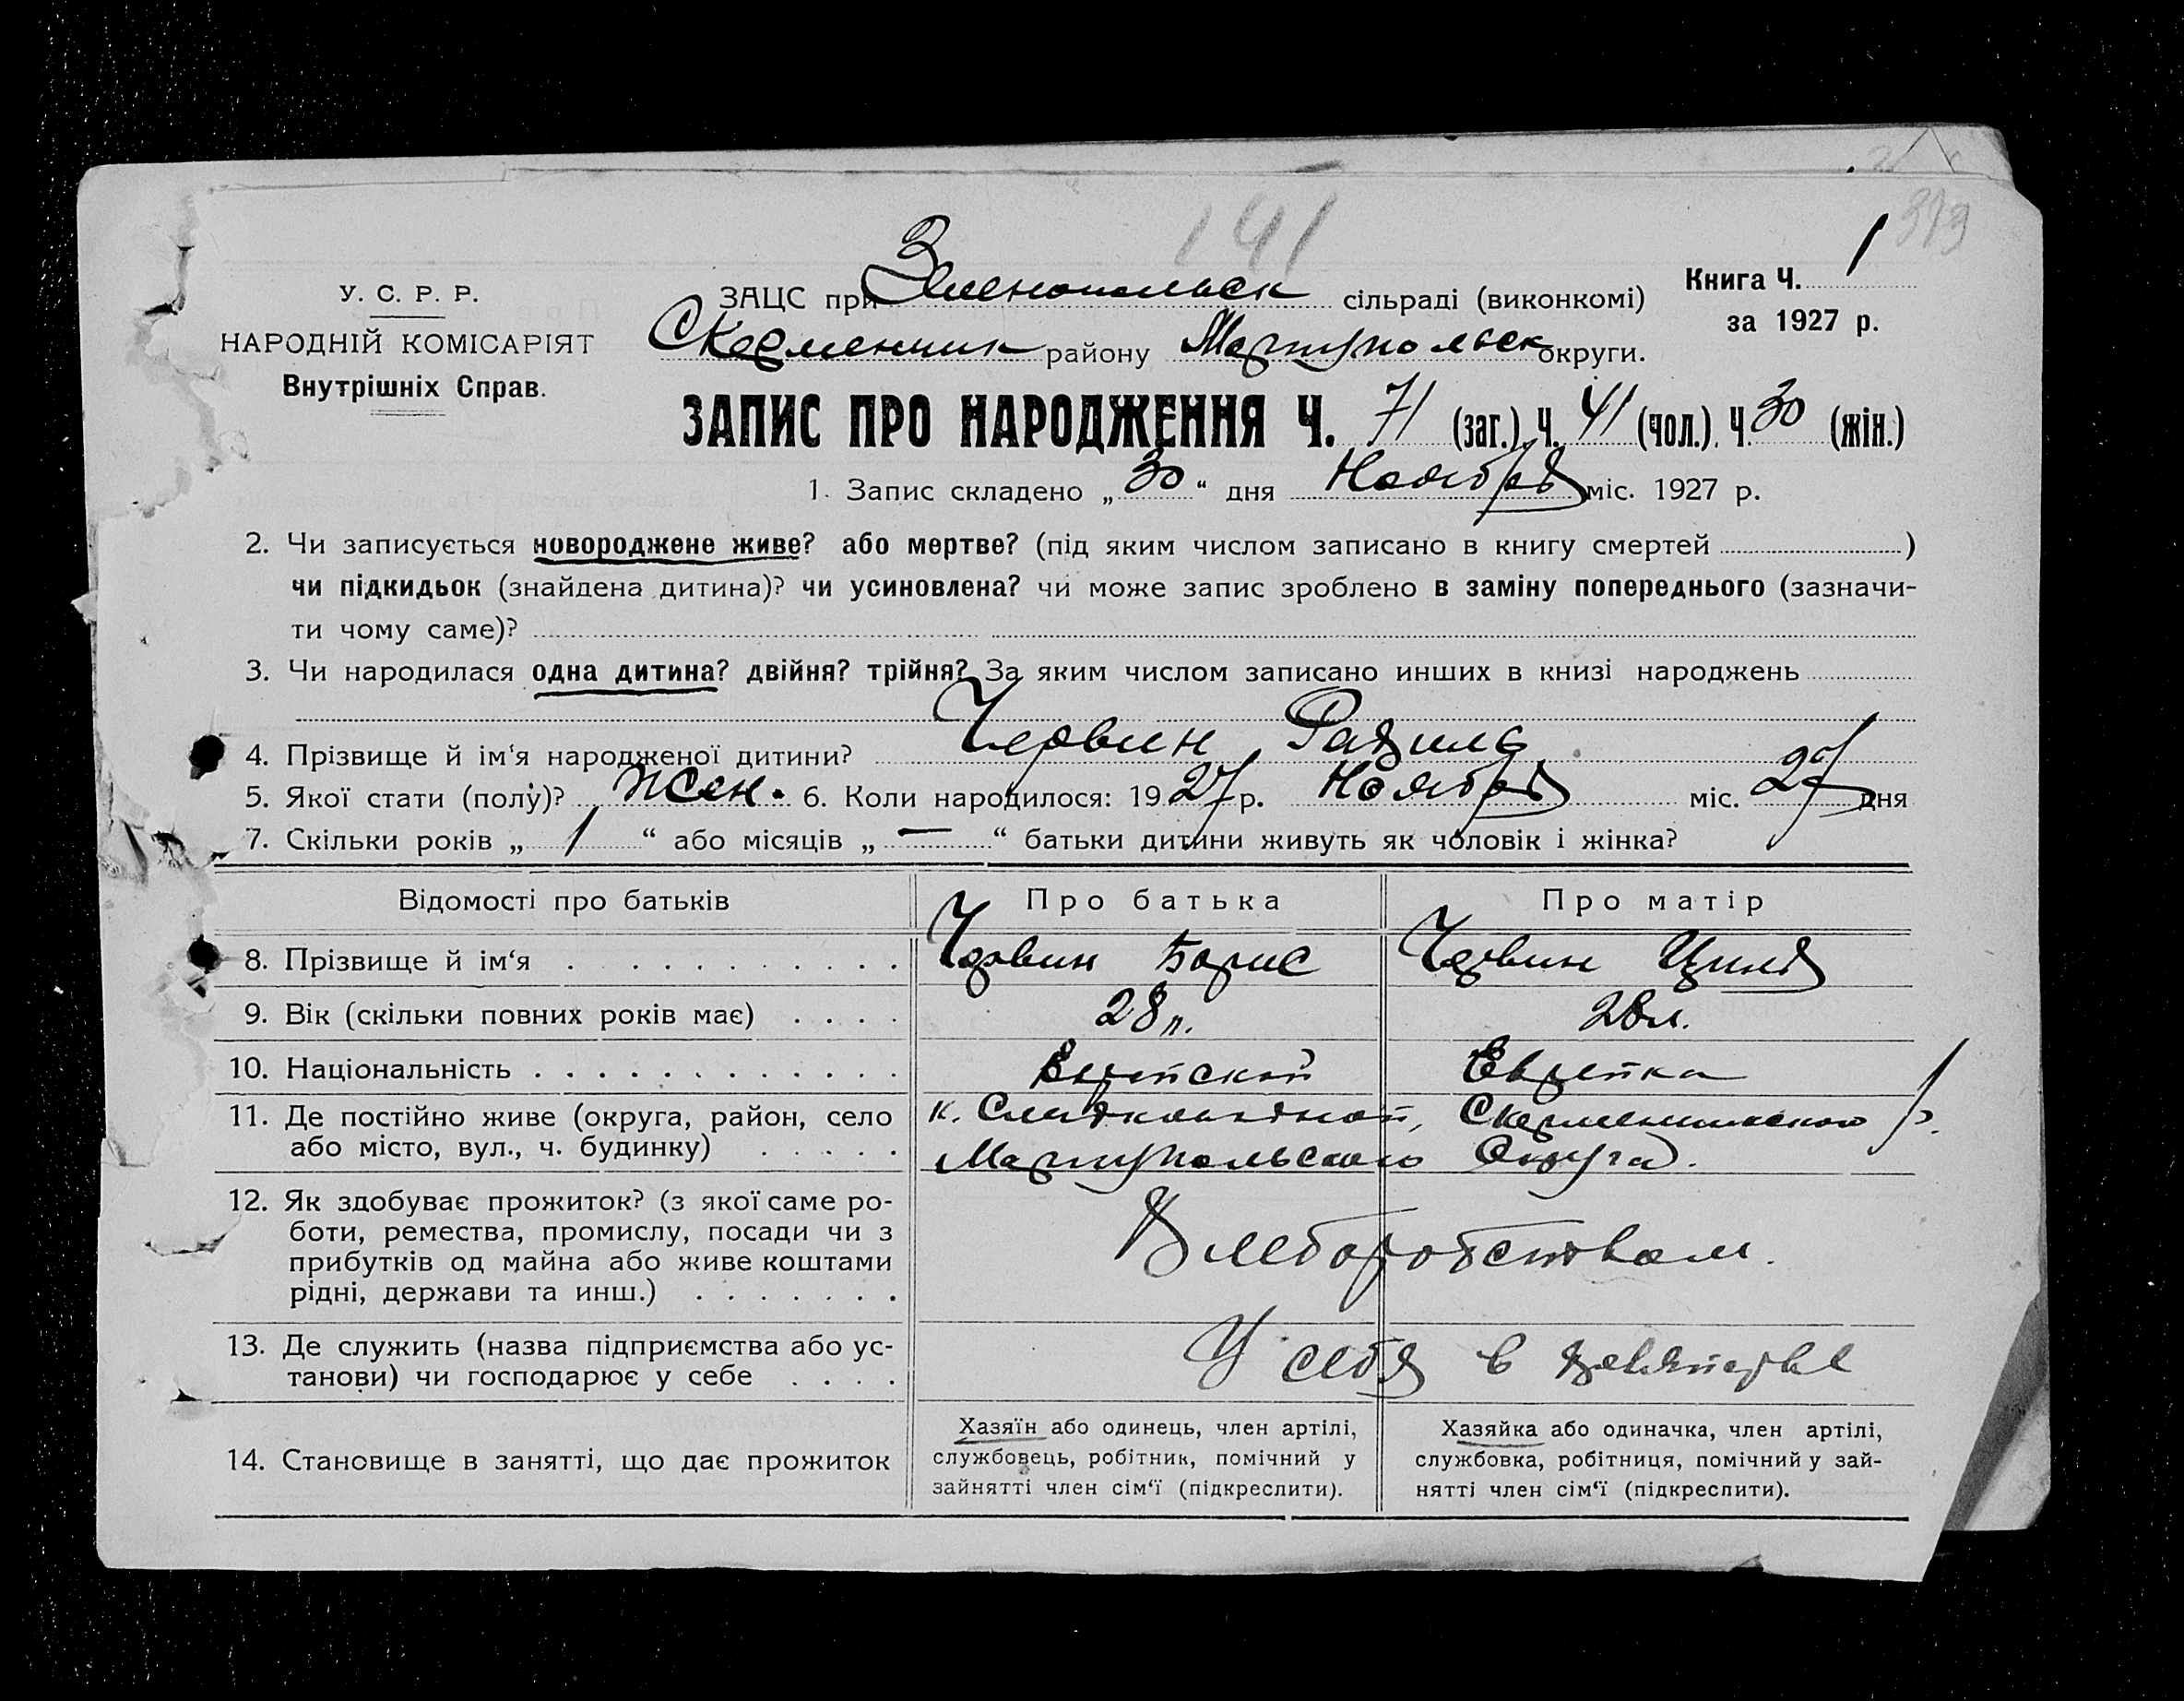 141
313
У. С. Р. Р.
НАРОДНІЙ КОМІСАРІЯТ
Внутрішніх Справ.
ЗАЦС при Зеленопольск сільраді (виконкомі)
Книга Ч. 1
за 1927 р.
Скерменчик району Мариупольск округи.
ЗАПИС ПРО НАРОДЖЕННЯ Ч. 71 (заг.) Ч. 41 (чол.). Ч. 30 (жін.)
1. Запис складено „ 30 “ дня Ноября міс. 1927 р.
2. Чи записується новороджене живе? або мертве? (під яким числом записано в книгу смертей )
чи підкидьок (знайдена дитина)? чи усиновлена? чи може запис зроблено в заміну попереднього (зазначи-
ти чому саме)?
3. Чи народилася одна дитина? двійня? трійня? За яким числом записано инших в книзі народжень
4. Прізвище й ім‘я народженої дитини? Червин
5. Якої стати (полу)? жен. 6. Коли народилося: 1927 р. Ноября міс. 27 дня
7. Скільки років „ 1 “ або місяців „ — “ батьки дитини живуть як чоловік і жінка?
Відомості про батьків Про батька Про матір
8. Прізвище й ім‘я Червин Борис Червин Циля
9. Вік (скільки повних років має) 28 л. 28 л.
10. Національність Еврейский Еврейка
11. Де постійно живе (округа, район, село к. Сладководной, Скерменчикского р.
або місто, вул., ч. будинку) Мариупольского Округа.
12. Як здобуває прожиток? (з якої саме ро-
боти, ремества, промислу, посади чи з
прибутків од майна або живе коштами Хлеборобством.
рідні, держави та инш.)
13. Де служить (назва підприємства або ус- У себя в
танови) чи господарює у себе
14. Становище в занятті, що дає прожиток
Хазяїн або одинець, член артілі,
службовець, робітник, помічний у
зайнятті член сім‘ї (підкреслити).
Хазяйка або одиначка, член артілі,
службовка, робітниця, помічний у зай-
нятті член сім‘ї (підкреслити).